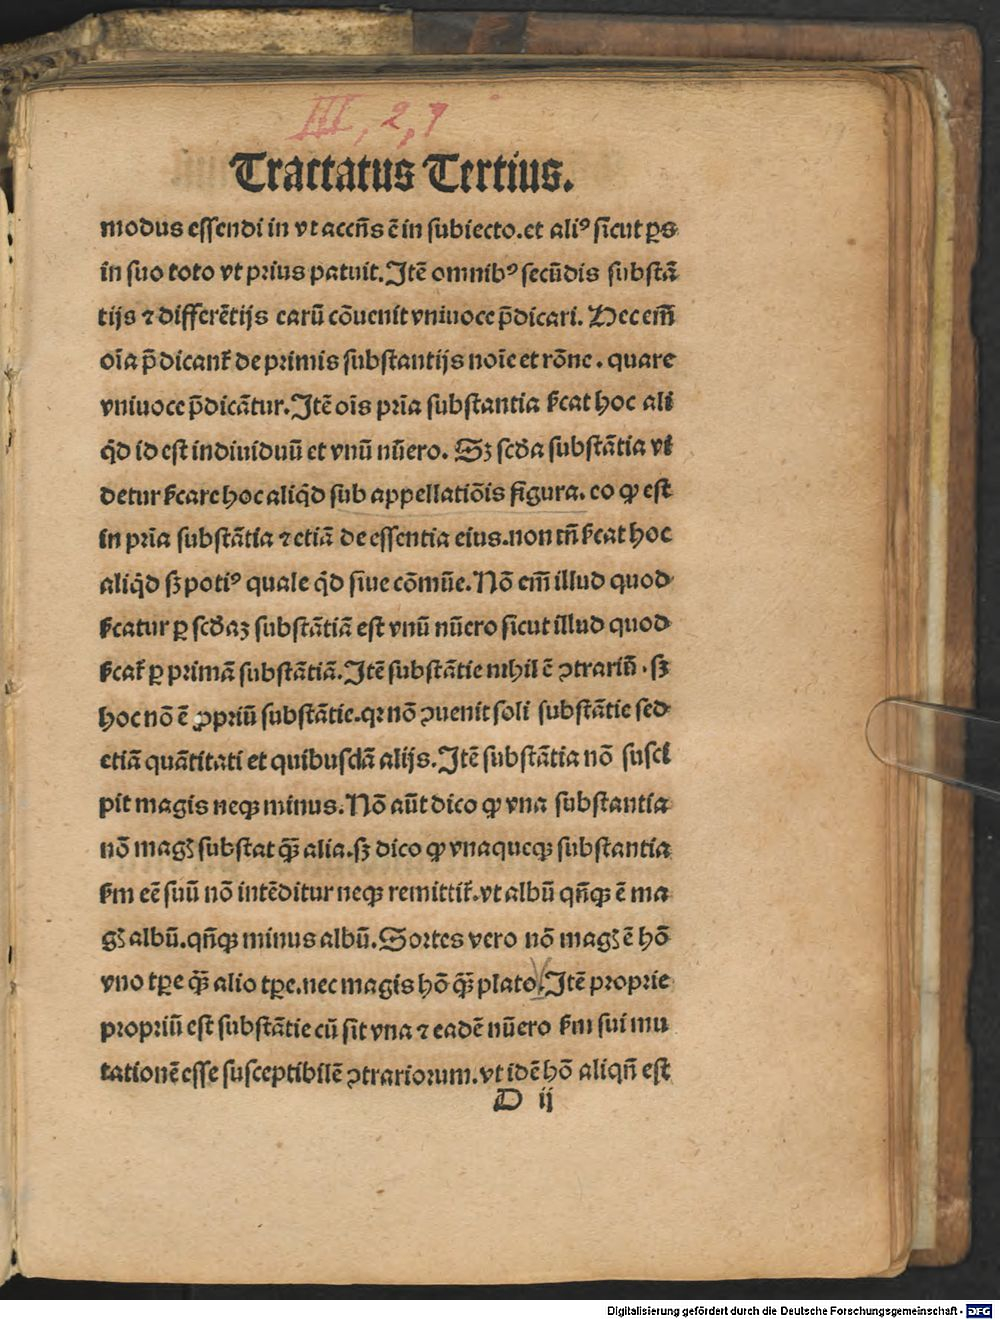 III, 2, 7
Tractatus Tertius.
modus essendi in vt accn̄s ē in subiecto. et aliꝰ sicut ꝑs
in suo toto vt prius patuit. Itē omnibꝰ secūdis substā
tijs ⁊ differētijs earū cōuenit vniuoce p̄dicari. Hec em̄
oīa p̄dicant̃ de primis substantijs noīe et rōne. quare
vniuoce p̄dicātur. Itē oīs prīa substantia ſc̄at hoc ali
q̇d id est indiuiduū et vnū nūero. Sꝫ scd̄a substātia vi
detur ſc̄are hoc aliq̇d sub appellatiōis figura. eo ꝙ est
in prīa substātia ⁊ etiā de essentia eius. non tn̄ ſc̄at hoc
aliq̇d sꝫ potiꝰ quale q̇d siue cōmūe. Nō em̄ illud quod
ſc̄atur ꝑ scd̄aꝫ substātiā est vnū nūero sicut illud quod
ſc̄at̃ ꝑ primā substātiā. Itē substātie nihil ē ꝯtrariū. sꝫ
hoc nō ē ꝓpriū substātie. qꝛ nō ꝯuenit soli substātie sed
etiā quātitati et quibusdā alijs. Itē substātia nō susci
pit magis neqꝫ minus. Nō aūt dico ꝙ vna substantia
nō magꝭ substat q̄ꝫ alia. sꝫ dico ꝙ vnaqueqꝫ substantia
ſm eē suū nō intēditur neqꝫ remittit̃. vt albū qn̄qꝫ ē ma
gꝭ albū. qn̄qꝫ minus albū. Sortes vero nō magꝭ ē hō
vno tꝑe q̄ꝫ alio tꝑe. nec magis hō q̄ꝫ plato. Itē proprie
propriū est substātie cū sit vna ⁊ eadē nūero ſm sui mu
tationē esse susceptibilē ꝯtrariorum. vt idē hō aliqn̄ est
D ij
Digitalisierung gefördert durch die Deutsche Forschungsgemeinschaft - DFG